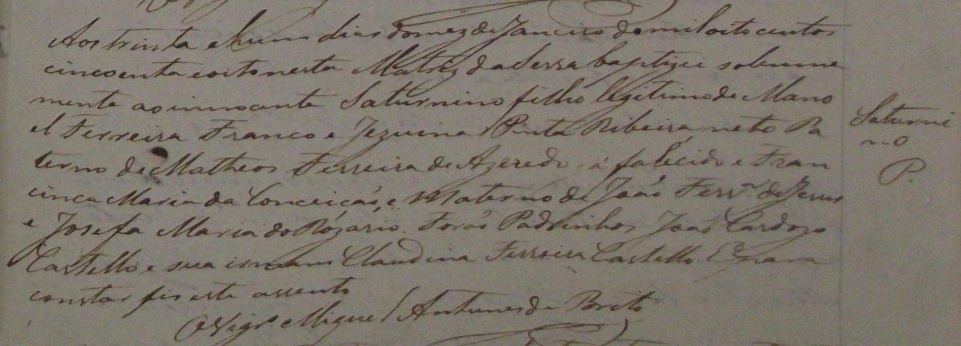 Aos trinta e hum dias do mez de Janeiro de mil oito centos
cincoenta e oito nesta Matriz da Serra baptizei solemne
mente ao innocente Saturnino filho legitimo de Mano
el Ferreira Franco e Jezuina Pinta Ribeira neto Pa
terno de Matheos Ferreira de Azeredo já falécido e Fran
cisca Maria da Conceicão, e Materno de João Ferrª de Jesus
e Josefa Maria do Rozario. Forão Padrinhos João Cardozo
Castello e sua irmam Claudina Ferreira Castello E para
constar fis este assento
O Vigrº Miguel Antunes de Brito
Saturni
no
P.